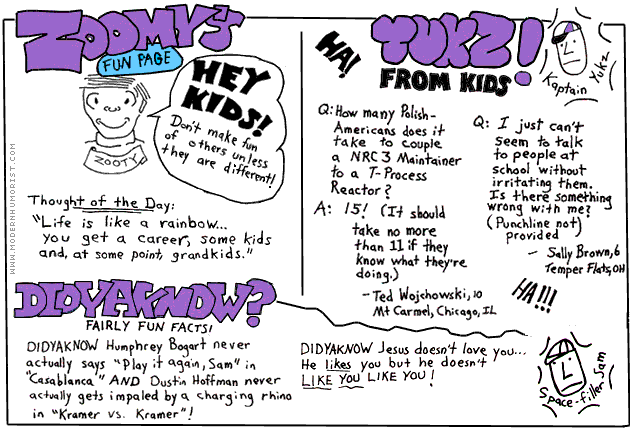 ZOOMY'S
FUN PAGE
HEY
KIDS!
Don't make fun
of others unless
they are different!
ZOOTY
WWW.MODERNHUMORIST.COM
Thought of the Day:
"Life is like a rainbow...
you get a career, some kids
and, at some point, grandkids."
HA!
YUKZ!
FROM KIDS
Kaptain Yukz
Q: How many Polish-
Americans does it
take to couple
a NRC3 Maintainer
to a T-Process
Reactor?
A: 15! (It should
take no more
than 11 if they
know what they're
doing.)
- Ted Wojchowski, 10
Mt Carmel, Chicago, IL
Q: I just can't
seem to talk
to people at
school without
irritating them.
Is there something
wrong with me?
(Punchline not)
provided
- Sally Brown, 6
Temper Flats, OH
HA!!!
DIDYAKNOW?
FAIRLY FUN FACTS!
DIDYAKNOW Humphrey Bogart never
actually says "Play it again, Sam" in
"Casablanca" AND Dustin Hoffman never
actually gets impaled by a charging rhino
in "Kramer vs. Kramer"!
DIDYAKNOW Jesus doesn't love you...
He likes you but he doesn't
LIKE YOU LIKE YOU!
Space-filler Sam